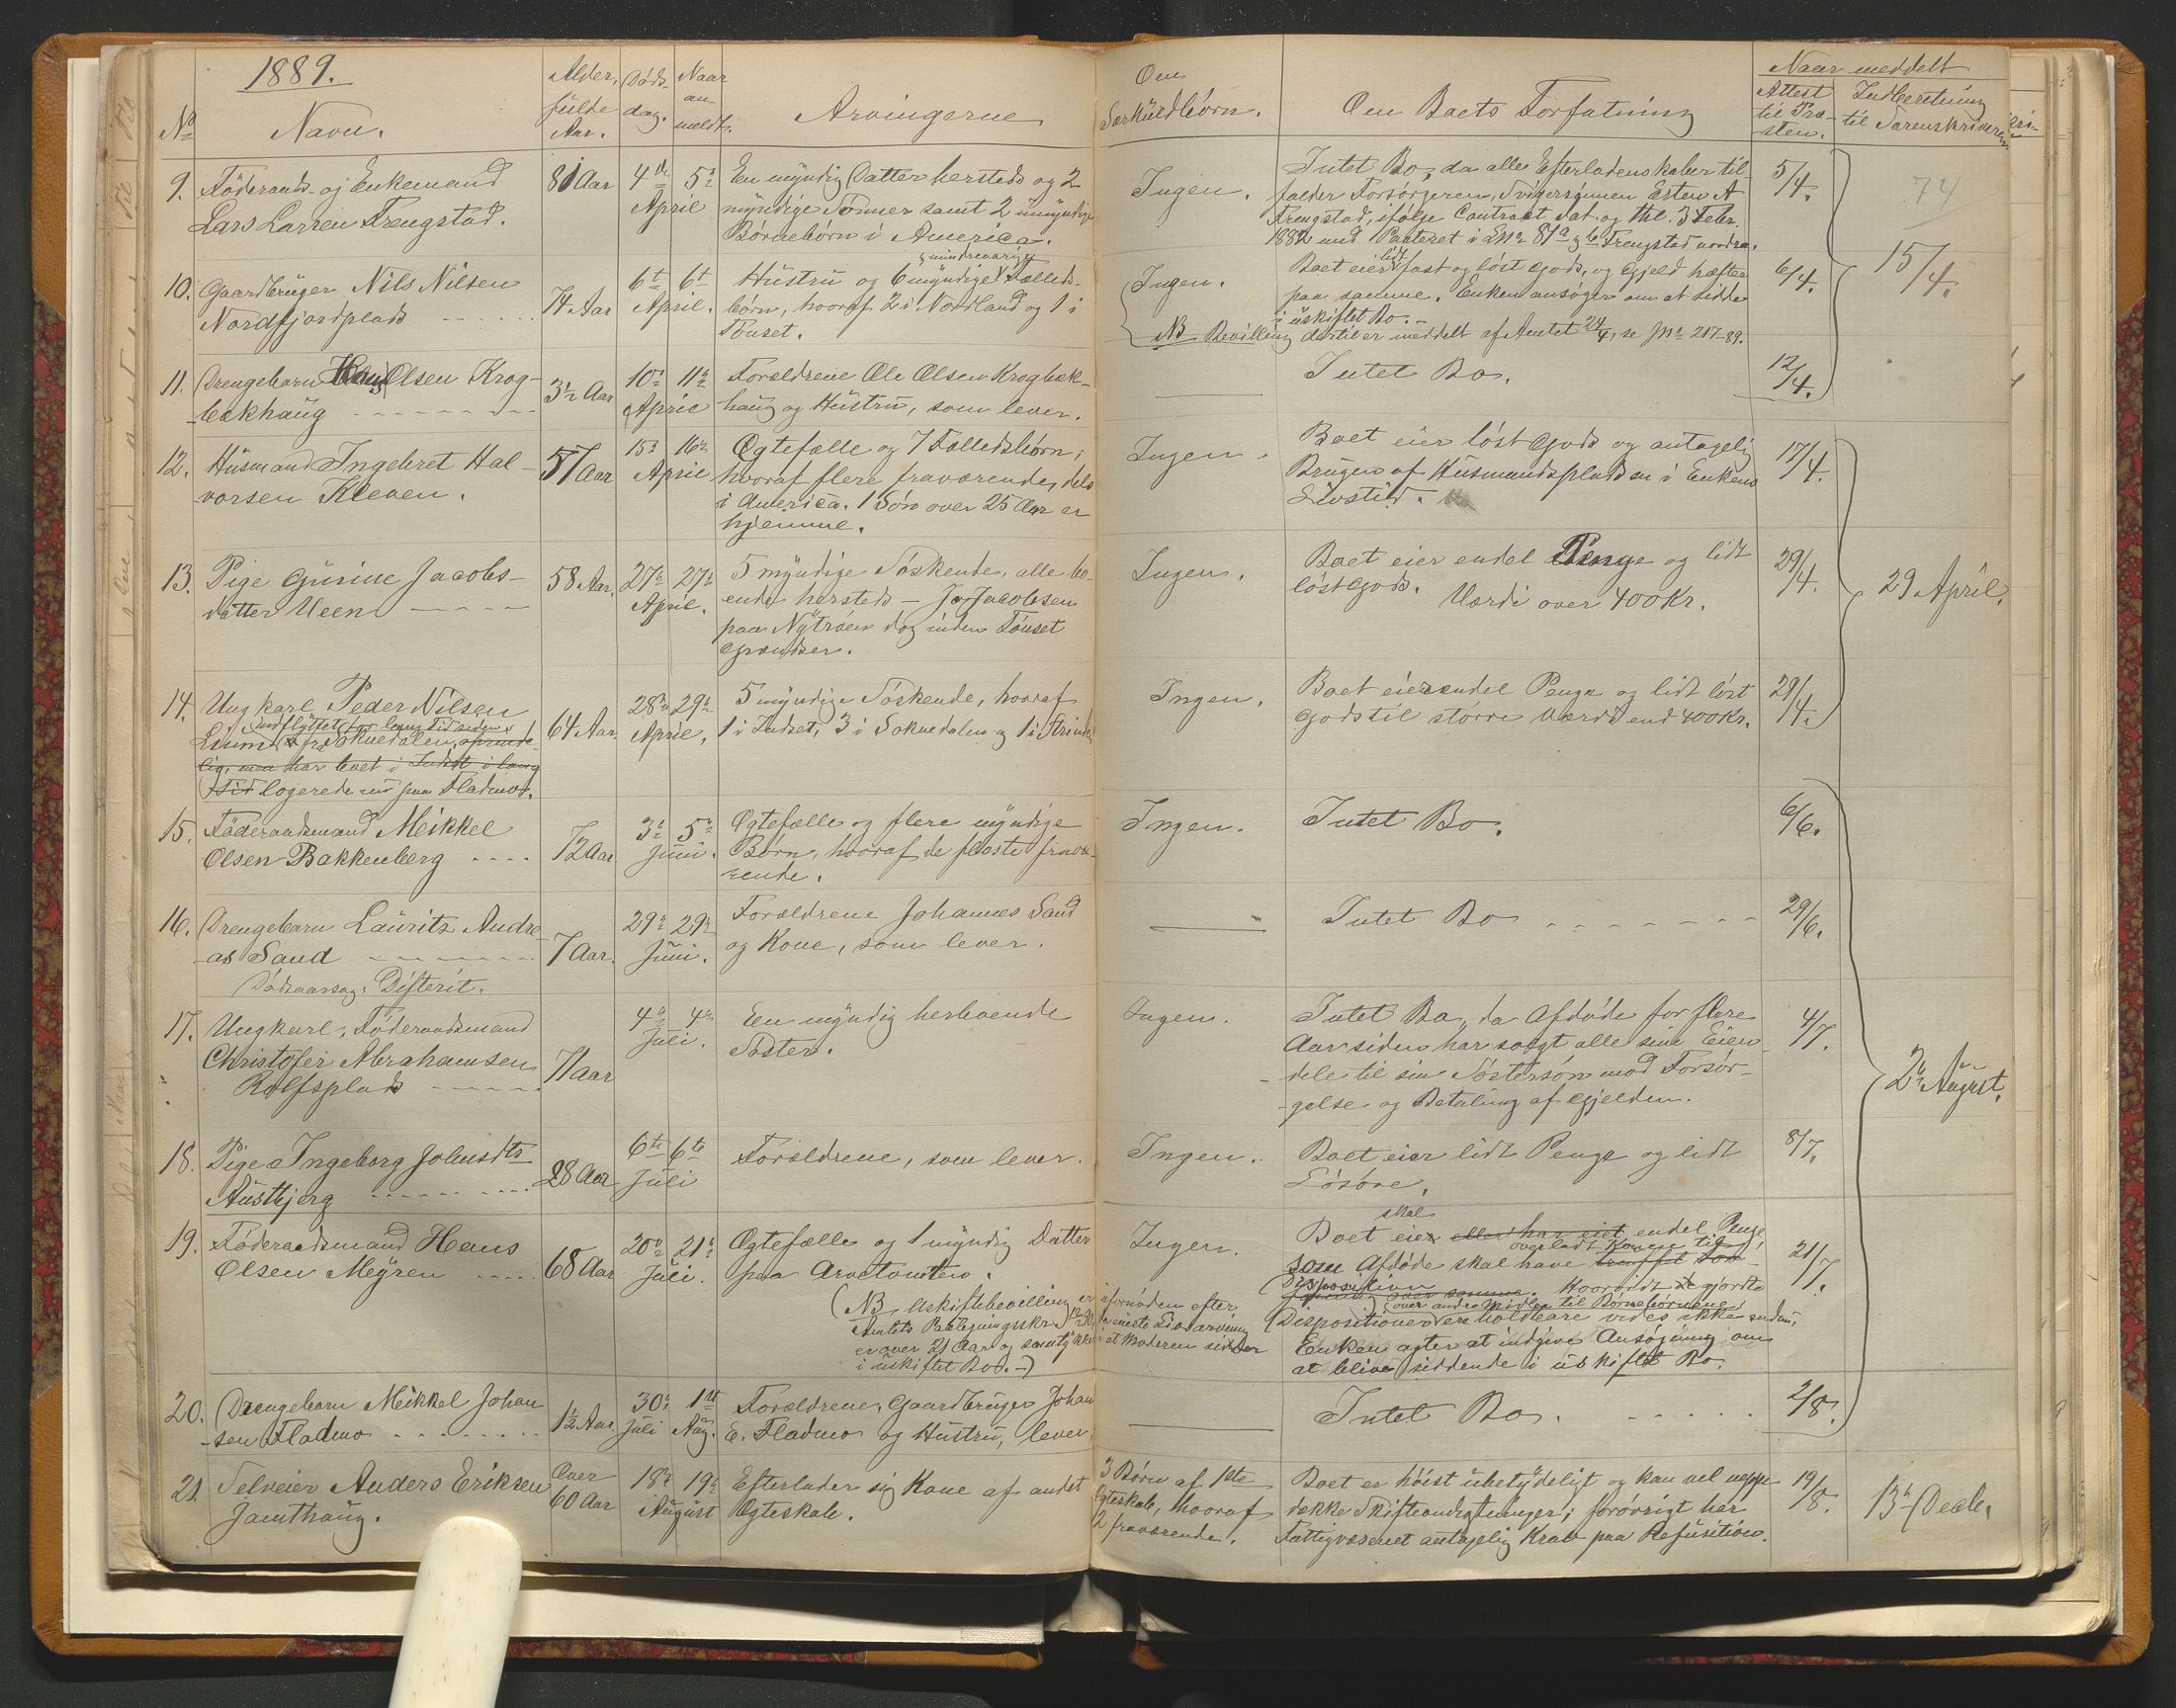 1889.
No
Navn.
Alder,
fulde
Aar.
Døds-
dag.
Naar
an-
meldt.
Arvingerne
Om
Særkuldbørn.
Om Boets Forfatning
Naar meddelt
Attest
til Præ-
sten.
Indberetning
til Sorenskriveren
9.
Føderaads- og Enkemand
Lars Larsen Trengstad.
81 Aar
4de
April
5te
En myndig Datter hersteds og 2
myndige Sønner samt 2 umyndige
Børnebørn i America.
Ingen.
Intet Bo, da alle Efterladenskaber til-
falder Forsørgeren, Svigersønnen Esten A
Trengstad, ifølge Contract dat. og thl. 3 Febr.
1882 med Panteret i LNo 81a og b Trengstad nordre.
5/4.
74
10.
Gaardbruger Nils Nilsen
Nordfjordplads
74 Aar
6te
April.
6te
Hustru og 6 myndige & mindreaarige Fælleds-
børn, hvoraf 2 i Nordland og 1 i
Tønset.
Ingen.
Boet eier lidt fast og løst Gods, og Gjeld hæfter
paa samme. Enken ansøger om at sidde
i uskiftet Bo.-
NB Bevilling dertil er meddelt af Amtet 24/4, se JNo 217-89.
6/4.
15/4.
11.
Drengebarn Hans Olsen Krog-
bækhaug
3½ Aar
10de
April
11te
Forældrene Ole Olsen Krogbæk-
haug og Hustru, som lever.
Intet Bo.
12/4.
12.
Husmand Ingebret Hal-
vorsen Kleven.
57 Aar
15de
April
16de
Ægtefælle og 7 Fælledsbørn,
hvoraf flere fraværende, dels
i America. 1 Søn over 25 Aar er
hjemme.
Ingen.
Boet eier løst Gods og antagelig
Brugen af Husmandspladsen i Enkens
Livstid.
17/4.
13.
Pige Gurine Jacobs-
datter Veen
58 Aar.
27de
April.
27de
5 myndige Søskende, alle bo-
ende hersteds - Jo Jacobsen
paa Nytrøen dog inden Tønset
Grændser.
Ingen.
Boet eier endel Penge og lidt
løst Gods. Værdi over 400 Kr.
29/4.
29 April.
14.
Ungkarl Peder Nilsen
indflyttet for lang Tid siden
fra Soknedalen, oprinde-
lig, men har levet i Indset i lang
Tid logerede nu paa Fladmo.
64 Aar.
28de
April.
29de
5 myndige Søskende, hvoraf
1 i Indset, 3 i Soknedalen og 1 i Strinden
Ingen.
Boet eier endel Penge og lidt løst
Gods til større Værdi end 400 Kr.
29/4.
15.
Føderaadsmand Meikkel
Olsen Bakkenberg
72 Aar
3de
Juni.
5te
Ægtefælle og flere myndige
Børn, hvoraf de fleste fravæ-
rende.
Ingen.
Intet Bo.
6/6.
16.
Drengebarn Lauritz Andre-
as Sand
Dødsaarsag: Difterit.
7 Aar.
29de
Juni.
29de
Forældrene Johannes Sand
og Kone, som lever.
Intet Bo
29/6.
17.
Ungkarl, Føderaadsmand
Christofer Abrahamsen
Rolfsplads
71 Aar
4de
Juli.
4de
En myndig herboende
Søster.
Ingen.
Intet Bo, da Afdøde for flere
Aar siden har solgt alle sine Eien-
dele til sin Søstersøn mod Forsør-
gelse og Betaling af Gjelden.
4/7.
2den August.
18.
Pige Ingeborg Johnsdtr
Austbjerg
28 Aar
6te
Juli
6te
Forældrene, som lever.
Ingen.
Boet eier lidt Penge og lidt
Løsøre.
8/7.
19.
Føderaadsmand Hans
Olsen Meyren
68 Aar
20de
Juli.
21de
Ægtefælle og 1 myndig Datter
paa Arvetomten.
(NB Uskiftebevilling er ufornøden efter
Amtets Paategningsskr.
er over 21 Aar og samtykker i at Moderen sidder
i uskiftet Bo.-)
Ingen.
skal
Boet eier eller har eiet endel Penge,
overladt Konen til
som Afdøde skal have truffet
Disposition over samme. Hvorvidt gjorte
over andre Midler til Børnebørnene
Dispositioner ere holdbare vides ikke endnu,
Enken agter at indgive Ansøgning om
at blive siddende i uskiftet Bo.
21/7.
20.
Drengebarn Meikkel Johan-
sen Fladmo
1½ Aar.
30te
Juli
1ste
Aug.
Forældrene, Gaardbruger Johan
E. Fladmo og Hustru, lever.
Intet Bo.
2/8.
21.
Selveier Anders Eriksen
Jamthaug.
Over
60 Aar
18de
August
19de
Efterlader sig Kone af andet
Ægteskab.
3 Børn af 1ste
Ægteskab, hvoraf
2 fraværende.
Boet er høist ubetydeligt og kan vel neppe
dække Skifteomkostninger; forøvrigt har
Fattigvæsenet antagelig Krav paa Refusition.
19/8.
13de Decbr.